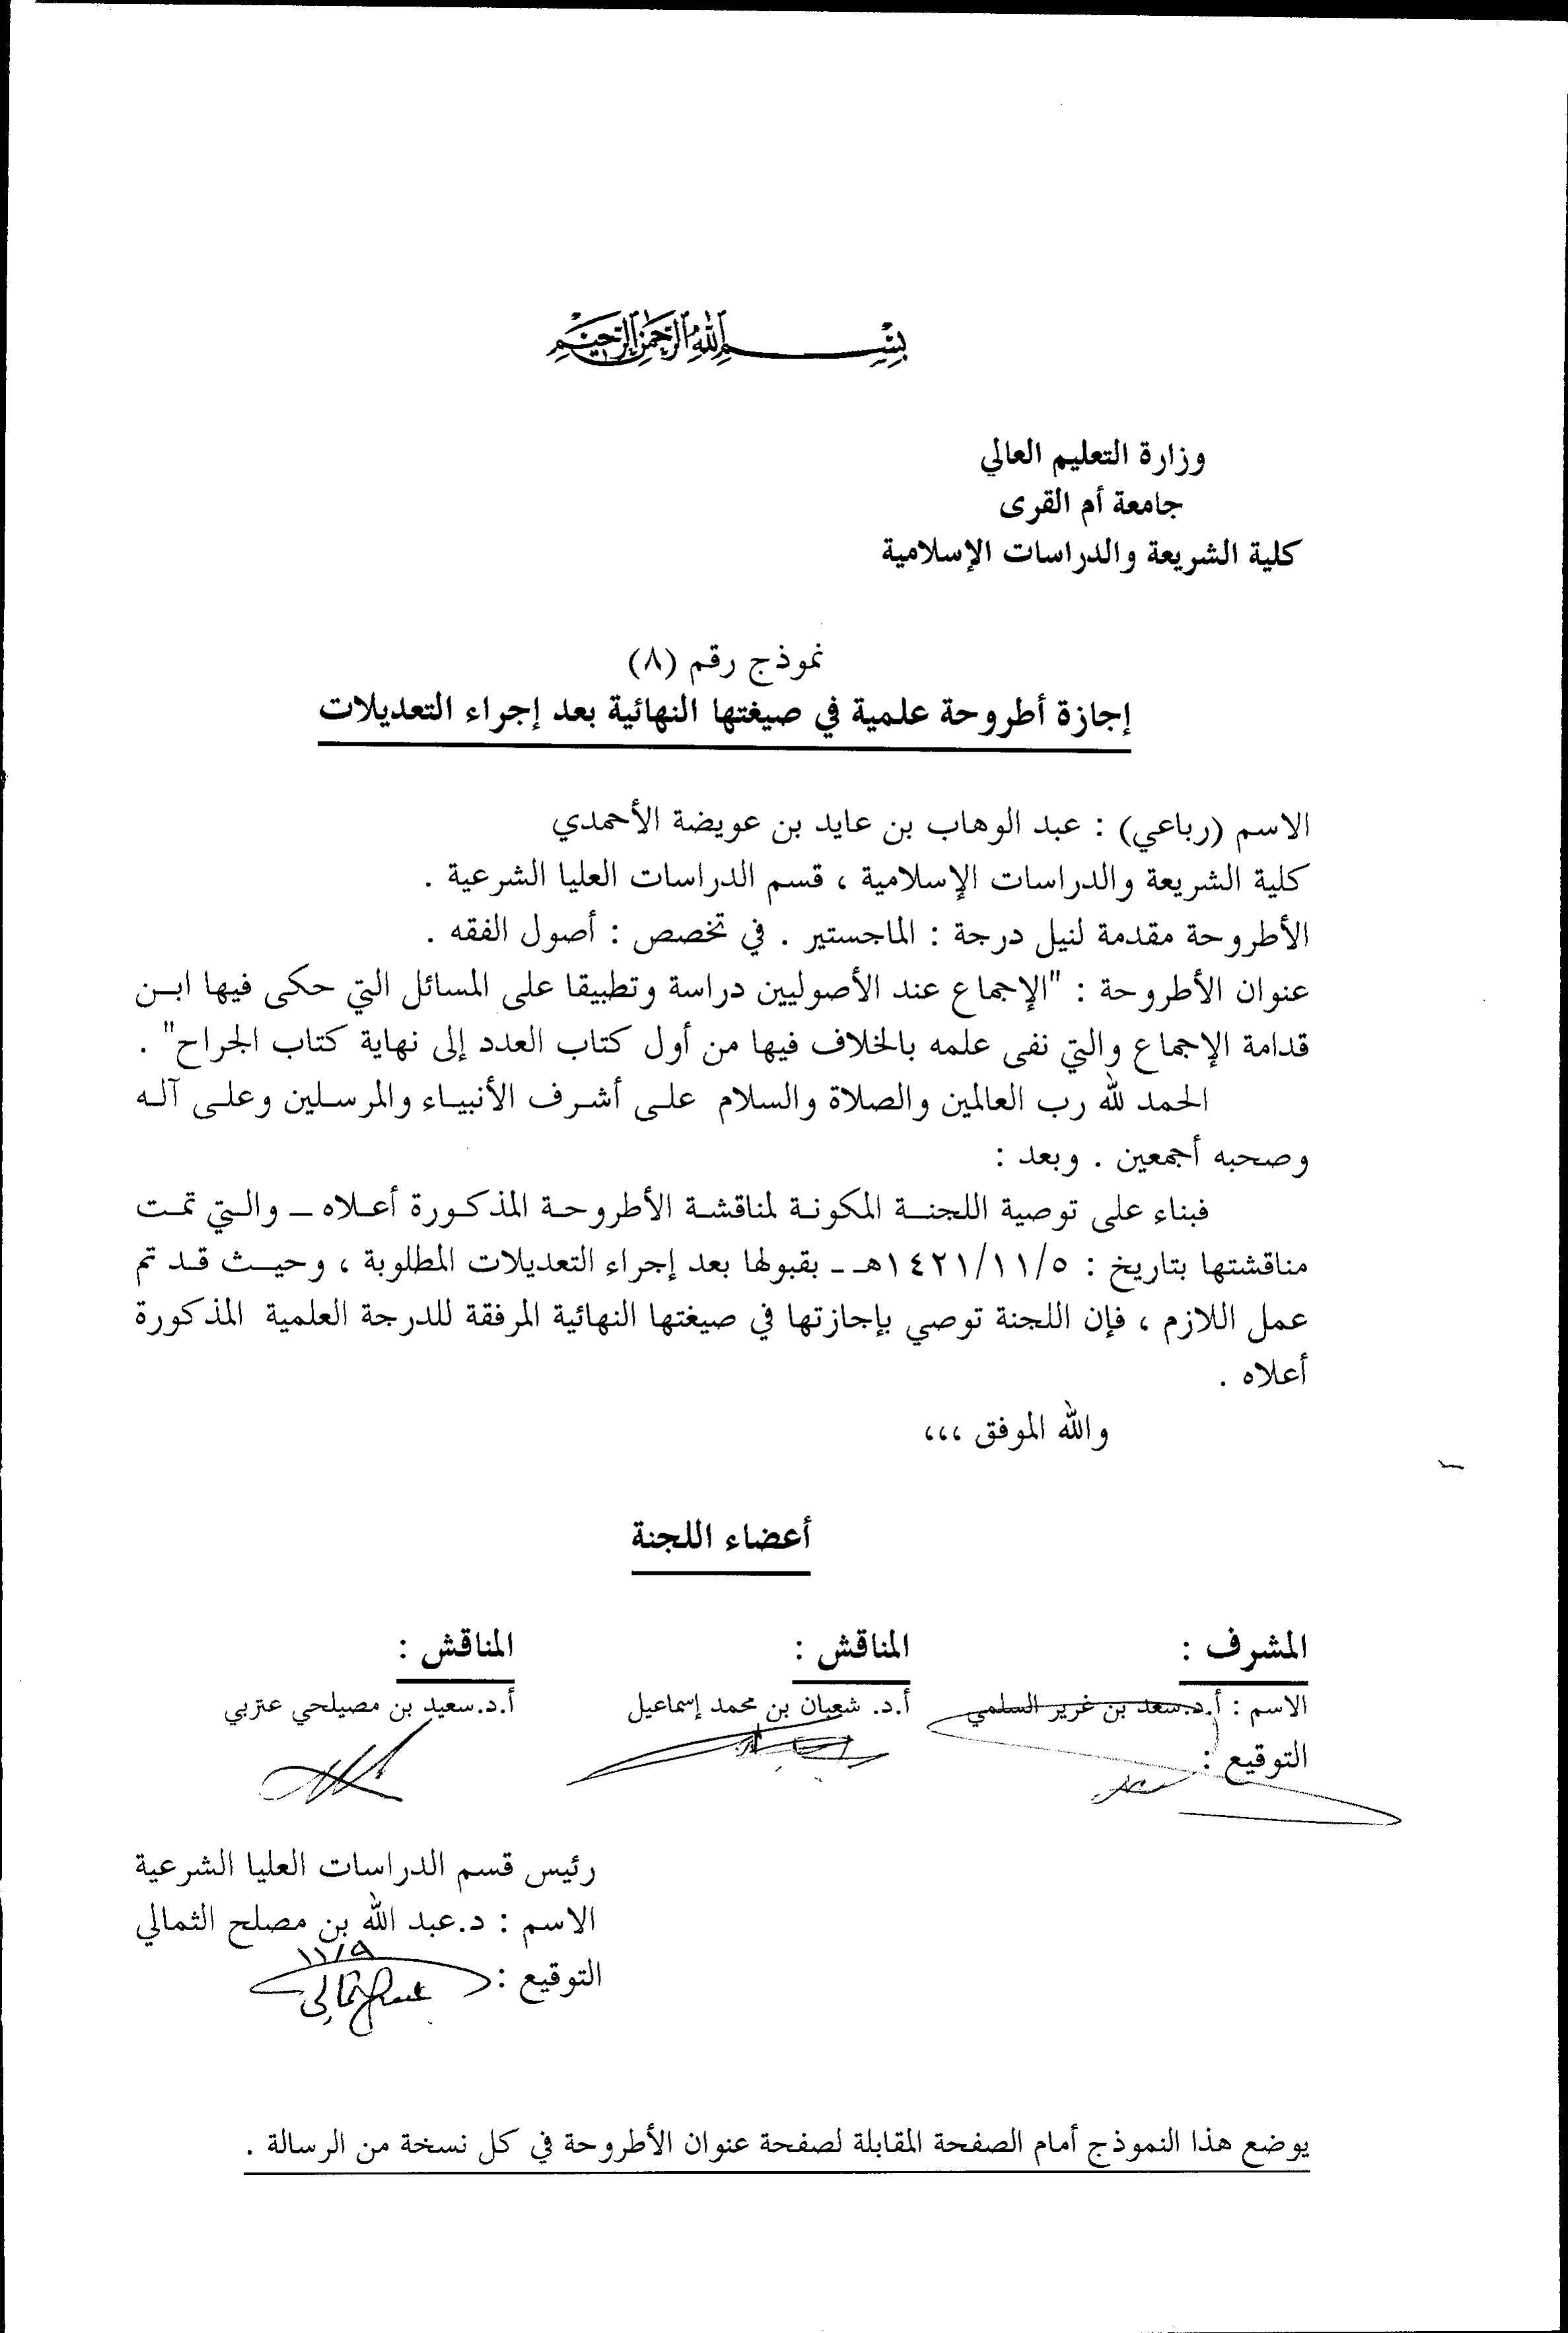 بسم الله الرحمن الرحيم
وزارة التعليم العالي
جامعة أم القرى
كلية الشريعة والدراسات الإسلامية
نموذج رقم (٨)
إجازة أطروحة علمية في صيغتها النهائية بعد إجراء التعديلات
الاسم (رباعي) : عبد الوهاب بن عايد بن عويضة الأحمدي
كلية الشريعة والدراسات الإسلامية ، قسم الدراسات العليا الشرعية .
الأطروحة مقدمة لنيل درجة : الماجستير . في تخصص : أصول الفقه .
عنوان الأطروحة : "الإجماع عند الأصوليين دراسة وتطبيقا على المسائل التي حكى فيها ابن
قدامة الإجماع والتي نفى علمه بالخلاف فيها من أول كتاب العدد إلى نهاية كتاب الجراح" .
الحمد لله رب العالمين والصلاة والسلام على أشرف الأنبياء والمرسلين وعلى آله
وصحبه أجمعين . وبعد :
فبناء على توصية اللجنة المكونة لمناقشة الأطروحة المذكورة أعلاه – والتي تمت
مناقشتها بتاريخ : ١٤٢١/١١/٥هـ - بقبولها بعد إجراء التعديلات المطلوبة ، وحيث قد تم
عمل اللازم ، فإن اللجنة توصي بإجازتها في صيغتها النهائية المرفقة للدرجة العلمية المذكورة
أعلاه .
والله الموفق ،،،
أعضاء اللجنة
المشرف : المناقش : المناقش :
الاسم : أ.د.سعد بن غرير السلمي أ.د. شعبان بن محمد إسماعيل أ.د.سعيد بن مصيلحي عتربي
التوقيع :
رئيس قسم الدراسات العليا الشرعية
الاسم : د.عبد الله بن مصلح الثمالي
١١/٩
التوقيع :
يوضع هذا النموذج أمام الصفحة المقابلة لصفحة عنوان الأطروحة في كل نسخة من الرسالة .